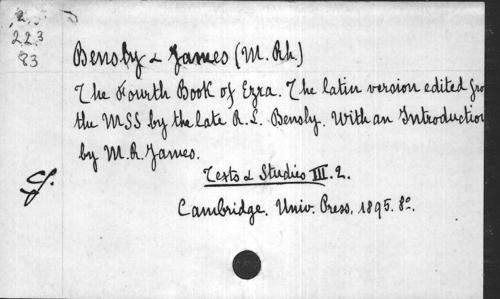 2.
223
83
Bensly & James (M. Rh.)
The Fourth Book of Ezra. The latin version edited from
the MSS by the late R. L. Bensly. With an Introduction
by M. R. James.
Texts & Studies III. 2.
Cambridge. Univ. Press. 1895. 8º.